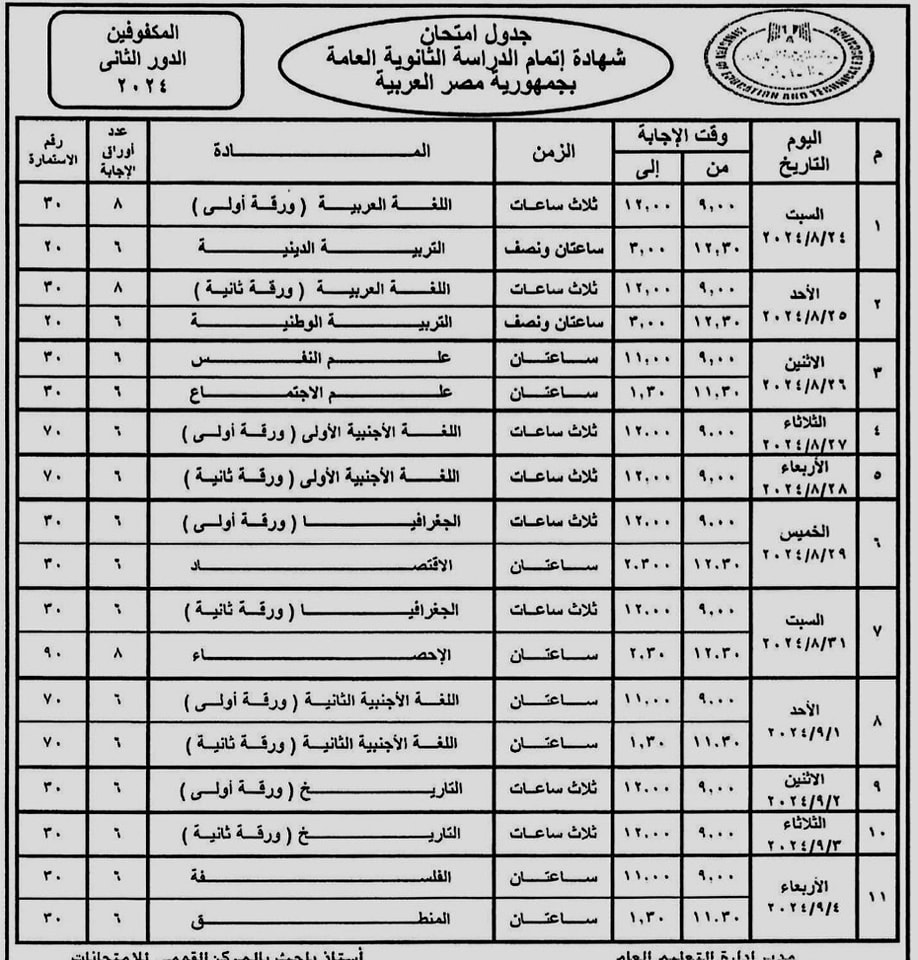 المكفوفين
الدور الثانى
٢٠٢٤
جدول امتحان
شهادة إتمام الدراسة الثانوية العامة
بجمهورية مصر العربية
EDUCATION AND TECHNICAL
م | اليوم التاريخ | وقت الإجابة من | إلى | الزمن | المــادة | عدد أوراق الإجابة | رقم الاستمارة
١ | السبت ٢٠٢٤/٨/٢٤ | ٩,٠٠ | ١٢,٠٠ | ثلاث ساعات | اللغة العربية ( ورقة أولى ) | ٨ | ٣٠
١٢,٣٠ | ٣,٠٠ | ساعتان ونصف | التربية الدينية | ٦ | ٢٠
٢ | الأحد ٢٠٢٤/٨/٢٥ | ٩,٠٠ | ١٢,٠٠ | ثلاث ساعات | اللغة العربية ( ورقة ثانية ) | ٨ | ٣٠
١٢,٣٠ | ٣,٠٠ | ساعتان ونصف | التربية الوطنية | ٦ | ٢٠
٣ | الاثنين ٢٠٢٤/٨/٢٦ | ٩,٠٠ | ١١,٠٠ | ساعتان | علم النفس | ٦ | ٣٠
١١,٣٠ | ١,٣٠ | ساعتان | علم الاجتماع | ٦ | ٣٠
٤ | الثلاثاء ٢٠٢٤/٨/٢٧ | ٩,٠٠ | ١٢,٠٠ | ثلاث ساعات | اللغة الأجنبية الأولى ( ورقة أولى ) | ٦ | ٧٠
٥ | الأربعاء ٢٠٢٤/٨/٢٨ | ٩,٠٠ | ١٢,٠٠ | ثلاث ساعات | اللغة الأجنبية الأولى ( ورقة ثانية ) | ٦ | ٧٠
٦ | الخميس ٢٠٢٤/٨/٢٩ | ٩,٠٠ | ١٢,٠٠ | ثلاث ساعات | الجغرافيا ( ورقة أولى ) | ٦ | ٣٠
١٢,٣٠ | ٢,٣٠٠ | ساعتان | الاقتصاد | ٦ | ٣٠
٧ | السبت ٢٠٢٤/٨/٣١ | ٩,٠٠ | ١٢,٠٠ | ثلاث ساعات | الجغرافيا ( ورقة ثانية ) | ٦ | ٣٠
١٢,٣٠ | ٢,٣٠ | ساعتان | الإحصاء | ٨ | ٩٠
٨ | الأحد ٢٠٢٤/٩/١ | ٩,٠٠ | ١١,٠٠ | ساعتان | اللغة الأجنبية الثانية ( ورقة أولى ) | ٦ | ٧٠
١١,٣٠ | ١,٣٠ | ساعتان | اللغة الأجنبية الثانية ( ورقة ثانية ) | ٦ | ٧٠
٩ | الاثنين ٢٠٢٤/٩/٢ | ٩,٠٠ | ١٢,٠٠ | ثلاث ساعات | التاريخ ( ورقة أولى ) | ٦ | ٣٠
١٠ | الثلاثاء ٢٠٢٤/٩/٣ | ٩,٠٠ | ١٢,٠٠ | ثلاث ساعات | التاريخ ( ورقة ثانية ) | ٦ | ٣٠
١١ | الأربعاء ٢٠٢٤/٩/٤ | ٩,٠٠ | ١١,٠٠ | ساعتان | الفلسفة | ٦ | ٣٠
١١,٣٠ | ١,٣٠ | ساعتان | المنطق | ٦ | ٣٠
مدير إدارة التعليم العام
أستاذ باحث بالمركز القومى للامتحانات